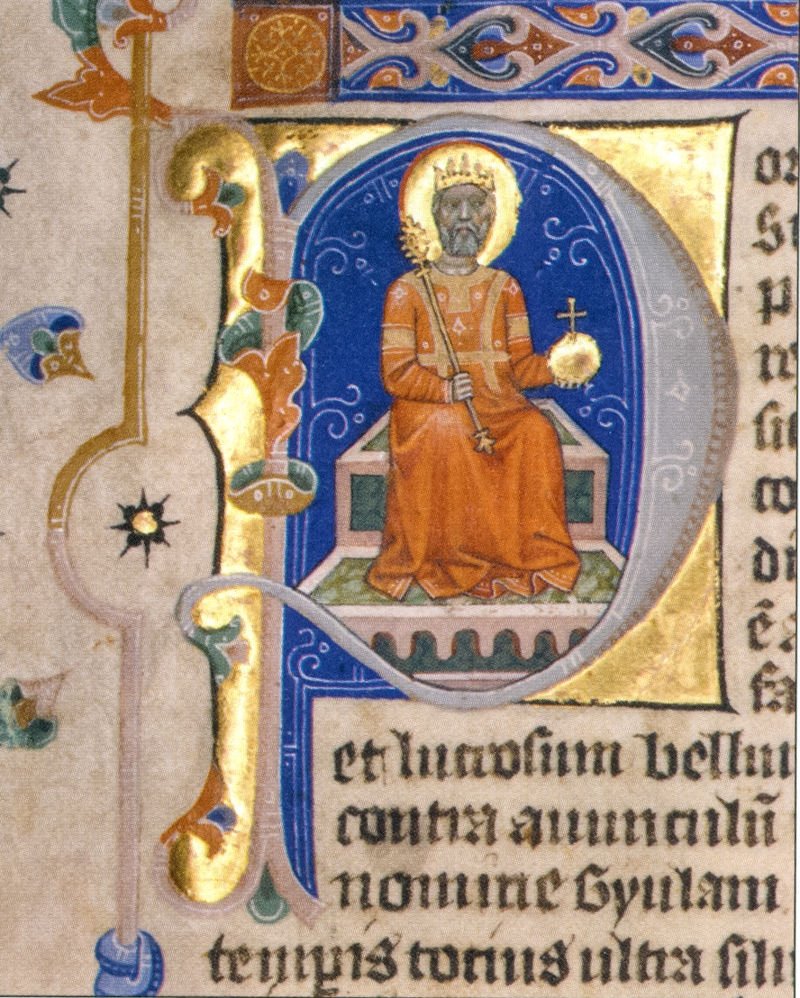 P or
St
p
re
sic
co
di
ēa
fa
et lucrosum bellu
contra auunculū
nomine Gyulam
tempis tocius ultra silu